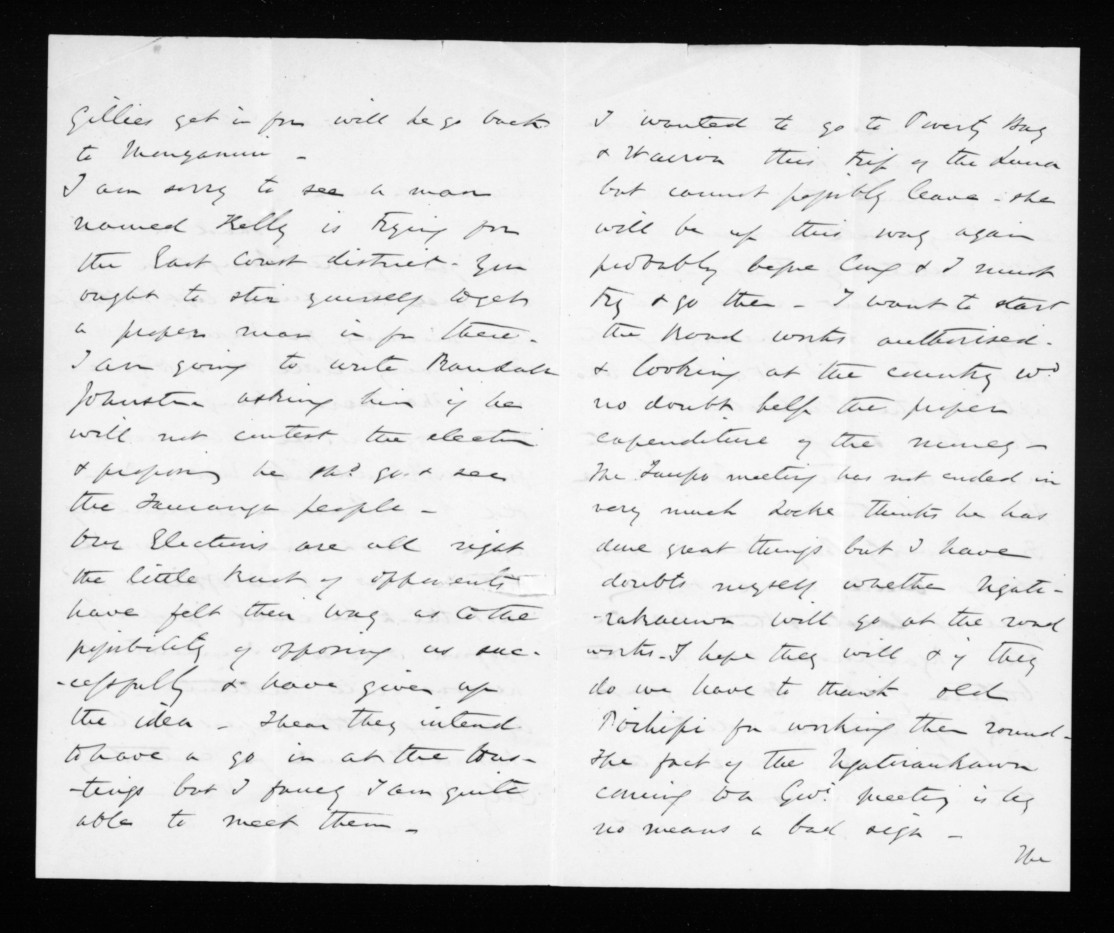 Gillies get in for will he go back
to Monganui -
I am sorry to see a man
named Kelly is trying for
the East Coast district - you
ought to stir yourself to get
a proper man in for there -
I am going to write Randall
Johnston asking him if he
will not contest the election
& proposing he shd. go & see
the Tauranga people -
Our Elections are all right
the little knot of opponents
have felt their way as to the
possibility of opposing us suc-
-cessfully & have given up
the idea - I hear they intend
to have a go in at the Hus-
-tings but I fancy I am quite
able to meet them -
I wanted to go to Poverty Bay
& Wairoa this trip of the Luna
but cannot possibly leave - she
will be up this way again
probably before long & I must
try & go then - I want to start
the Road works authorised -
& looking at the country wd.
no doubt help the proper
expenditure of the money -
The Taupo meeting has not ended in
very much Locke thinks he has
done great things but I have
doubts myself whether Ngati-
-rakauwa will go at the road
works - I hope they will & if they
do we have to thank old
Poihipi for working them round -
The fact of the Ngatiraukawa
coming to a Govt. meeting is by
no means a bad sign -
The